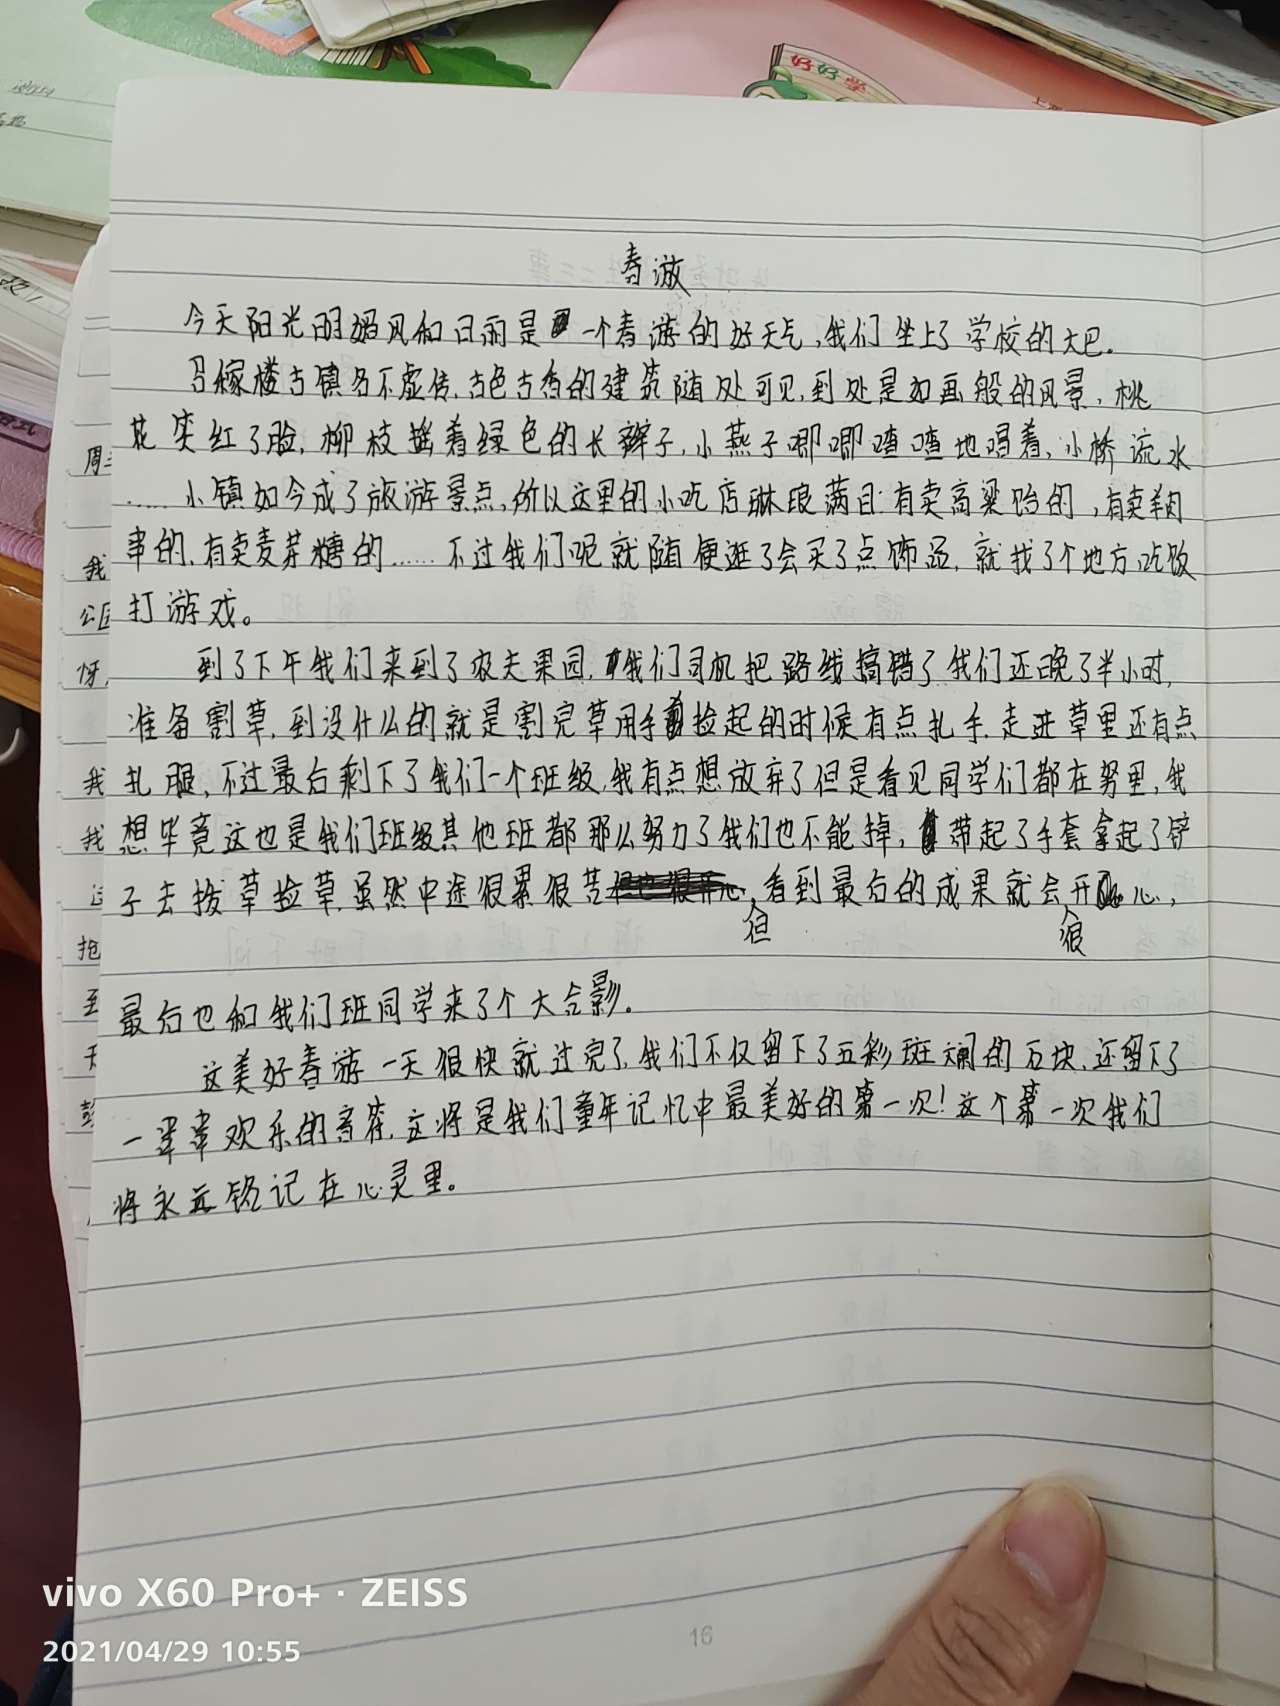 好好学
春游
今天阳光明媚风和日丽是一个春游的好天气,我们坐上了学校的大巴.
召稼楼古镇名不虚传,古色古香的建筑随处可见,到处是如画般的风景,桃
花笑红了脸,柳枝摇着绿色的长辫子,小燕子唧唧喳喳地唱着,小桥流水
……小镇如今成了旅游景点,所以这里的小吃店琳琅满目有卖高粱饴的,有卖羊肉
串的,有卖麦芽糖的……不过我们呢就随便逛了会买了点饰品,就找了个地方吃饭
打游戏。
到了下午我们来到了农夫果园,我们司机把路线搞错了我们还晚了半小时,
准备割草,到没什么的就是割完草用手捡起的时候有点扎手,走进草里还有点
扎腿,不过最后剩下了我们一个班级,我有点想放弃了但是看见同学们都在努里,我
想毕竟这也是我们班级其他班都那么努力了我们也不能掉,带起了手套拿起了铲
子去拨草捡草,虽然中途很累很苦,但看到最后的成果就会很开心,
最后也和我们班同学来了个大合影.
这美好春游一天很快就过完了,我们不仅留下了五彩斑斓的石块,还留下了
一串串欢乐的音符,这将是我们童年记忆中最美好的第一次!这个第一次我们
将永远铭记在心灵里。
周
我
公园
怀
我
我
抢
至
16
vivo X60 Pro+ · ZEISS
2021/04/29 10:55